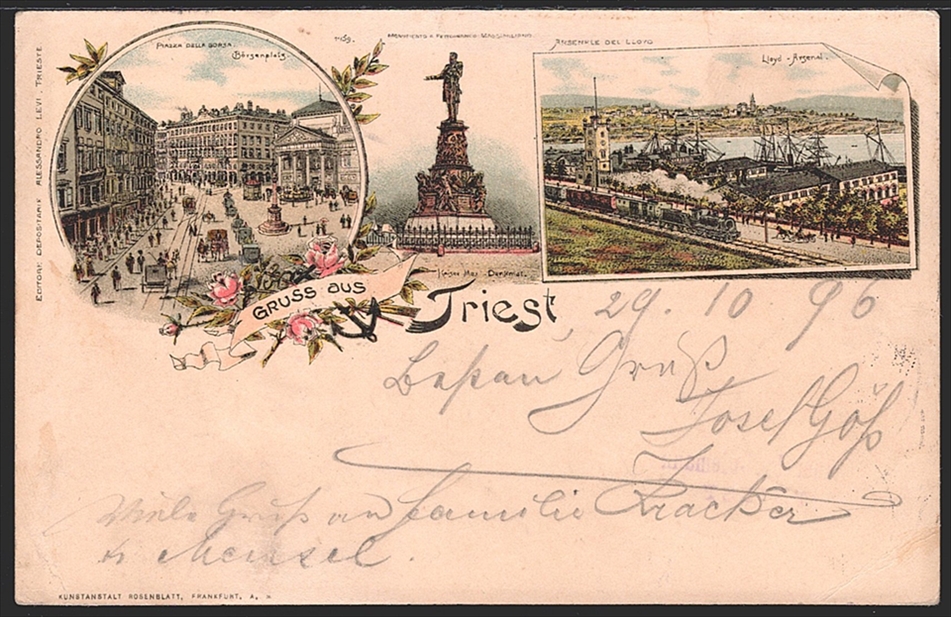 PIAZZA DELLA BORSA.
Börsenplatz.
MONUMENTO A FERDINANDO MASSIMILIANO.
ARSENALE DEL LLOYD
Lloyd - Arsenal.
EDITORE DEPOSITARIO ALESSANDRO LEVI, TRIESTE
Kaiser Max - Denkmal.
GRUSS AUS
Triest
29. 10 96
Besten Gruß
Josef Göß
Viele Grüße an Familie
& Mensel.
KUNSTANSTALT ROSENBLATT, FRANKFURT, A. M